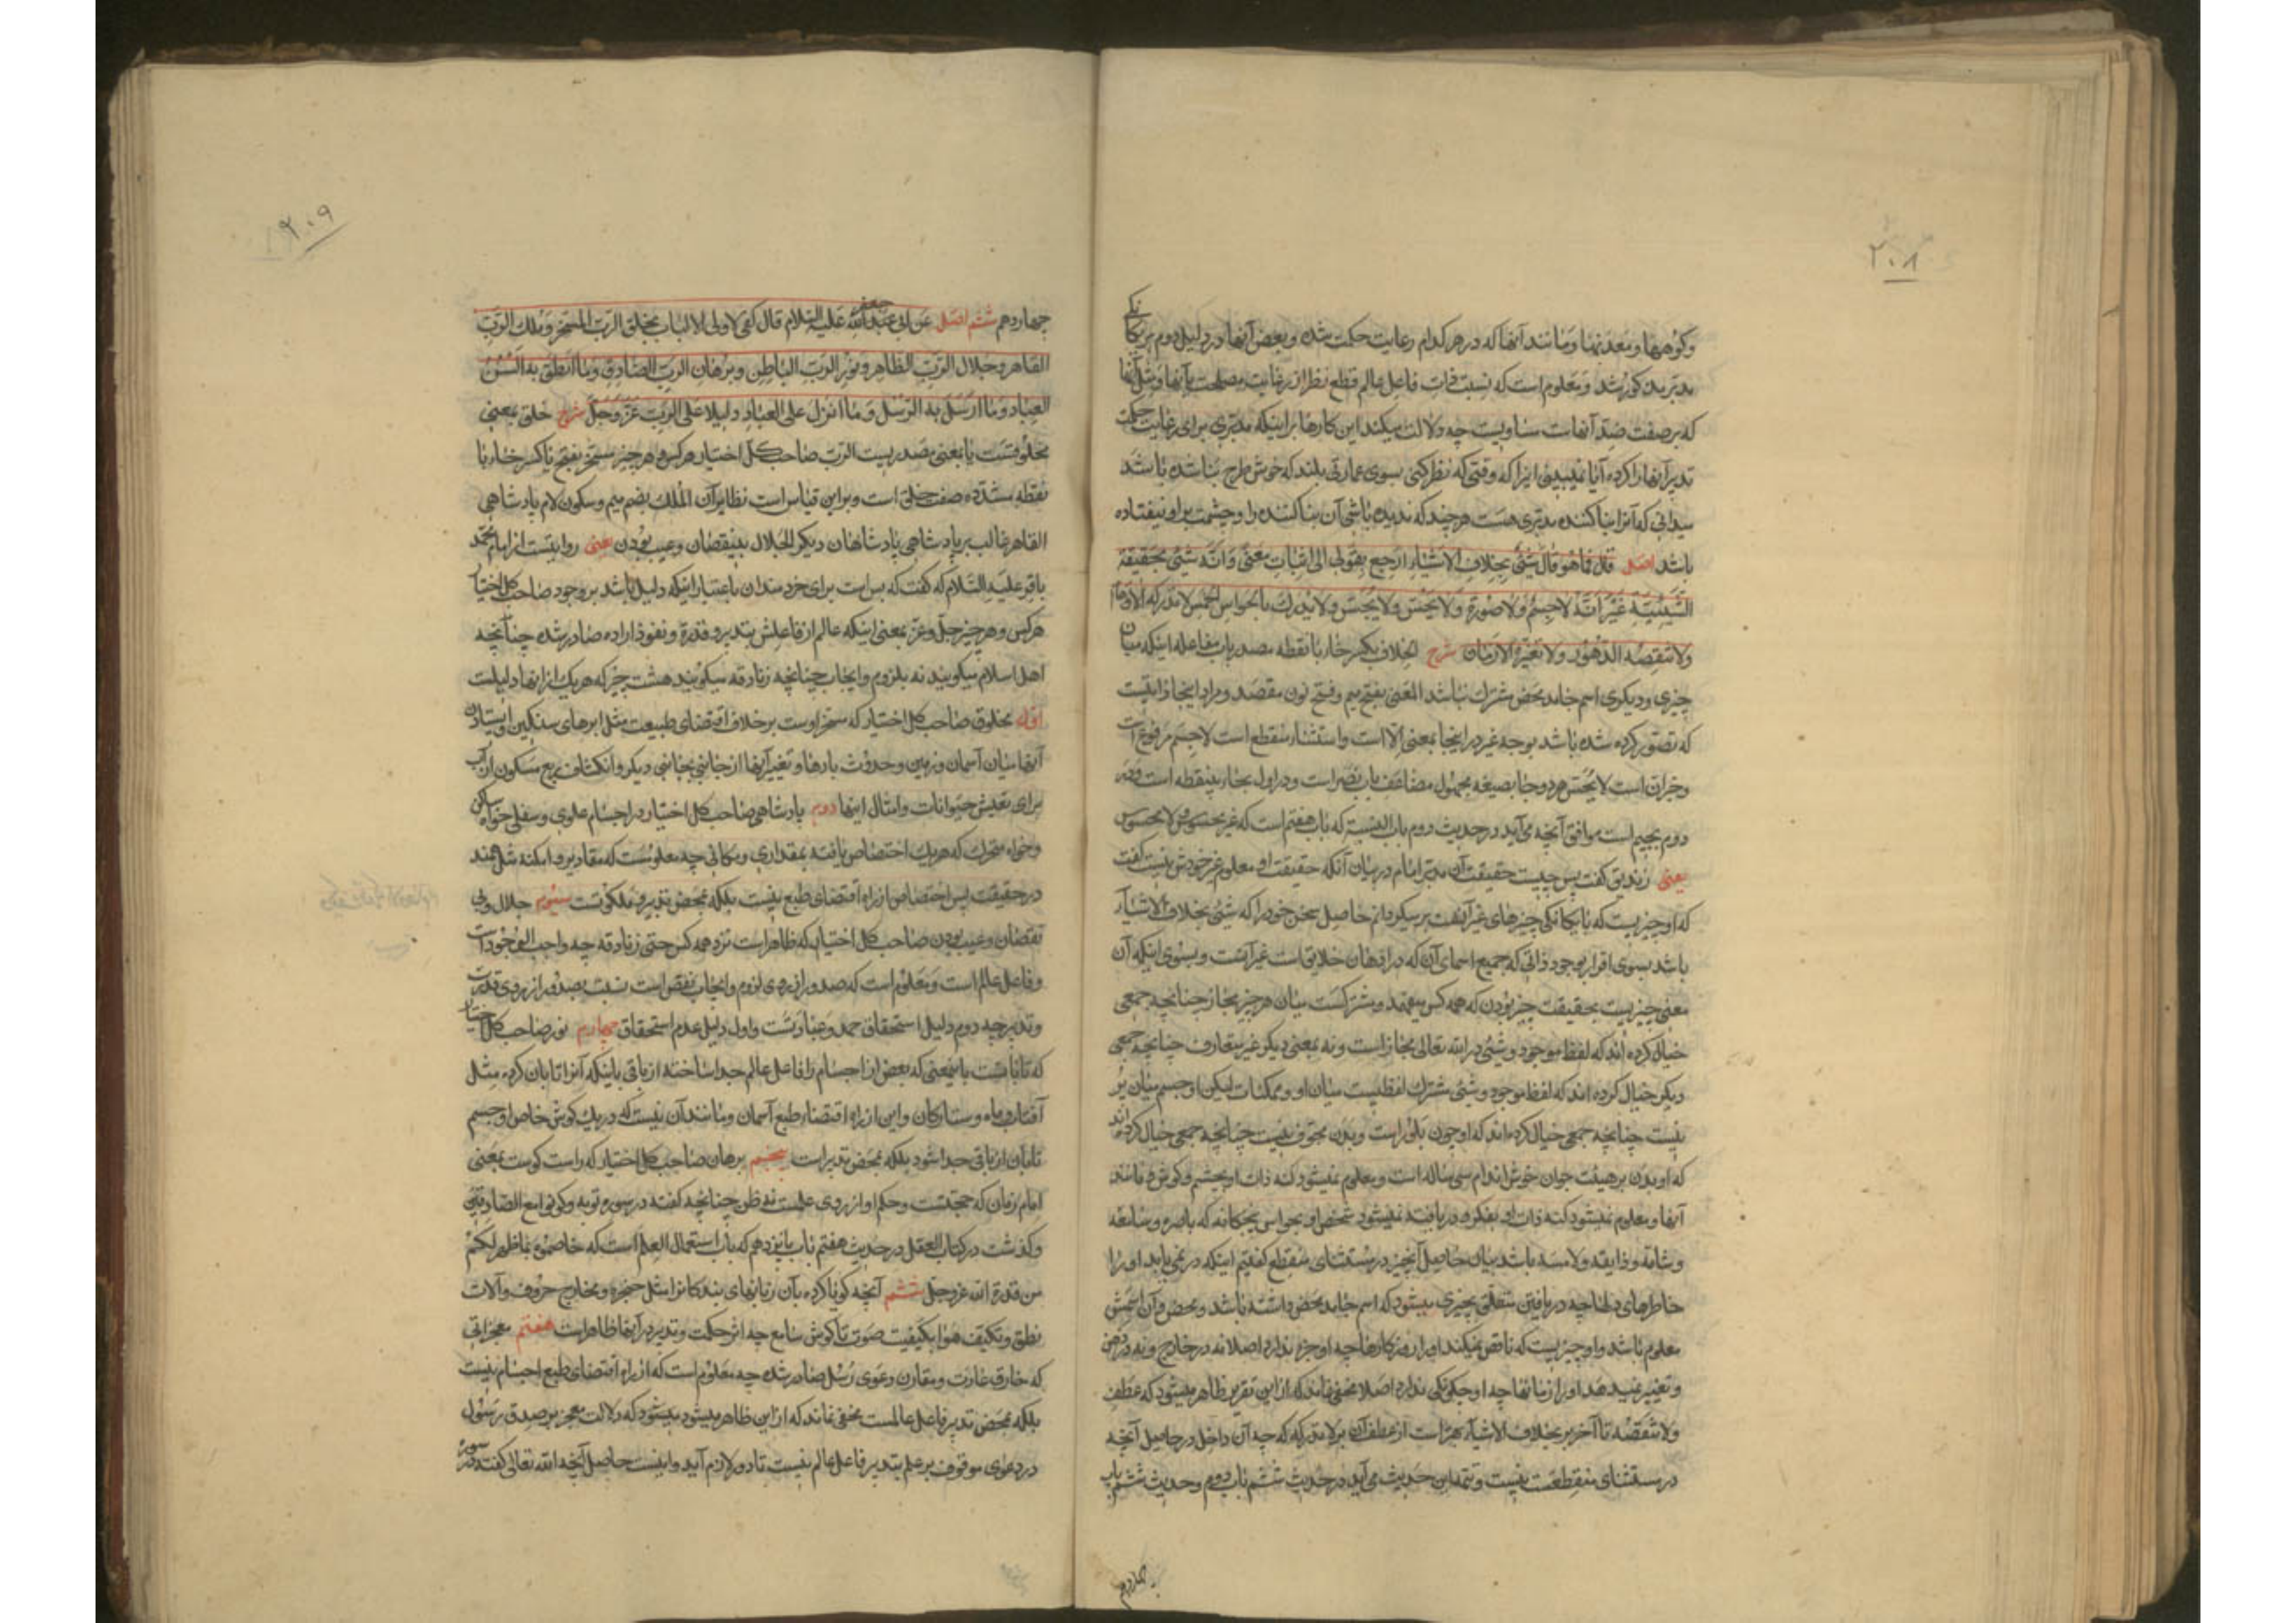 ۲۰۸
وکوهها ومعدنها ومانند آنها که در هر کدام رعایت حکمت شده وبعض آنها در دلیل دوم بر یکانکی
مدبر مذکور شد ومعلوم است که نسبت ذات فاعل عالم قطع نظر از رعایت مصلحت بآنها ومثل آنها
که بر صفت ضد آنهاست مساویست چه دلالت میکند این کارها بر اینکه مدبری برای رعایت حکمت
تدبیر آنها را کرده آیا نمیبینی اینرا که وقتی که نظر کنی بسوی عمارتی بلند که خوش طرح بنا شده باشد
میدانی که آنرا بنا کننده مدبری هست هر چند که ندیده باشی آن بنا کننده را وچشمت بر او نیفتاده
باشد اصل قال فما هو قال شیئ بخلاف الاشیاء ارجع بقولی الی اثبات معنی وانه شیئ بحقیقة
الشیئیة غیر انه لا جسم ولا صورة ولا یحس ولا یجس ولا یدرک بالحواس الخمس لا تدرکه الاوهام
ولا تنقصه الدهور ولا تغیره الازمان شرح الخلاف بکسر خاء با نقطه مصدر باب مفاعله اینکه میان
چیزی ودیگری اسم جامد محض مشترک نباشد المعنی بفتح میم وفتح نون مقصد ومراد اینجا ذاتیست
که تصور کرده شده باشد بوجه غیر در اینجا بمعنی الا است واستثناء منقطع است لا جسم مرفوع است
وخبر ان است لا یحس هر دو جا بصیغه مجهول مضاعف باب نصر است ودر اول بحاء بینقطه است ودر
دوم بجیم است موافق آنچه می‌آید در حدیث دوم باب النسبة که باب هفتم است که غیر محسوس ولا مجسوس
یعنی زندیق گفت پس چیست حقیقت آن مدبر امام در بیان آنکه حقیقت او معلوم غیر خودش نیست گفت
که او چیزیست که با یکانکی چیزهای غیر آنست بر میکردانم حاصل سخن خود را که شیئ بخلاف الاشیاء
باشد بسوی اقرار بوجود ذاتی که جمیع اسمای آن که در اذهان خلایق است غیر آنست وبسوی اینکه آن
معنی چیزیست بحقیقت چیز بودن که همه کس میفهمد ومشترکست میان هر چیز نه بمجاز چنانچه جمعی
خیال کرده اند که لفظ موجود وشئ در الله تعالی مجاز است ونه بمعنی دیکر غیر متعارف چنانچه جمعی
دیکر خیال کرده اند که لفظ موجود وشئ مشترک لفظیست میان او وممکنات لیکن او جسم میان پر
نیست چنانچه جمعی خیال کرده اند که او چون بلور است وبدن مجوف نیست چنانچه جمعی خیال کرده اند
که او بدن بر هیئت جوان خوش اندام سی ساله است ومعلوم نمیشود کنه ذات او بچشم وکوش ومانند
آنها ومعلوم نمیشود کنه ذات او بفکر ودریافته نمیشود شخص او بحواس پنجکانه که باصره وسامعه
وشامه وذایقه ولامسه باشد بیان حاصل آنچیز در مستثنای منقطع کفتیم اینکه در نمی یابد او را
خاطرهای دلها چه دریافتن متعلق بچیزی میشود که اسم جامد محض داشته باشد ومحض آن اسمش
معلوم باشد واو چیزیست که ناقص نمیکند او را روزکارها چه او جزء ندارد اصلا نه در خارج ونه در ذهن
وتغییر نمیدهد او را زمانها چه او چکونکی ندارد اصلا مخفی نماند که از این تقریر ظاهر میشود که عطف
ولا تنقصه تا آخر بر بخلاف الاشیاء بهتر است از عطف آن بر لا تدرکه چه آن داخل در حاصل آنچه
در مستثنای منقطعست نیست وتتمه این حدیث می‌آید در حدیث ششم باب دوم وحدیث ششم باب
چهاردهم
۲۰۹
چهاردهم ششم اصل عن ابی عبد الله جعفر علیه السلام قال کفی لاولی الالباب بخلق الرب المسخر وملک الرب
القاهر وجلال الرب الظاهر ونور الرب الباطن وبرهان الرب الصادق وما انطق به السن
العباد وما ارسل به الرسل وما انزل علی العباد دلیلا علی الرب عز وجل شرح خلق بمعنی
مخلوقست یا بمعنی مصدریست الرب صاحب کل اختیار هر کس وهر چیز مسخر بفتح یا کسر خاء با
نقطه مشدده صفت خلق است وبر این قیاس است نظایر آن الملک بضم میم وسکون لام پادشاهی
القاهر غالب بر پادشاهی پادشاهان دیکر الجلال بینقصان وعیب بودن یعنی روایتست از امام محمد
باقر علیه السلام که گفت که بس است برای خردمندان باعتبار اینکه دلیل باشد بر وجود صاحب کل اختیار
هر کس وهر چیز جل وعز بمعنی اینکه عالم از فاعلش بتدبیر وقدرة ونفوذ اراده صادر شده چنانچه
اهل اسلام میکویند نه بلزوم وایجاب چنانچه زنادقه میکویند هشت چیز که هر یک از آنها دلیلست
اول مخلوق صاحب کل اختیار که مسخر اوست بر خلاف اقتضای طبیعت مثل ابرهای سنکین وایستادن
آنها میان آسمان وزمین وحدوث بادها وتغییر آنها از جانبی بجانبی دیکر وانکشاف ربع مسکون از آب
برای تعیش حیوانات وامثال اینها دوم پادشاهی صاحب کل اختیار در اجسام علوی وسفلی خواه ساکن
وخواه متحرک که هر یک اختصاص یافته بمقداری ومکانی چه معلومست که مقادیر وامکنه مثل همند
در حقیقت پس اختصاص از راه اقتضای طبع نیست بلکه بمحض تدبیر وملکوتست سیوم جلال وبی
نقصان وعیب بودن صاحب کل اختیار که ظاهر است نزد همه کس حتی زنادقه چه واجب الوجود است
وفاعل عالم است ومعلوم است که صدور از روی لزوم وایجاب نقص است نسبت بصدور از روی قدرت
وتدبیر چه دوم دلیل استحقاق حمد وعبادتست واول دلیل عدم استحقاق چهارم نور صاحب کل اختیار
که تابانست باینمعنی که بعض از اجسام را فاعل عالم جدا ساخته از باقی باینکه آنرا تابان کرده مثل
آفتاب وماه وستارکان واین از راه اقتضاء طبع آسمان ومانند آن نیست که در یک کوش خاص او جسم
تابان از باقی جدا شود بلکه بمحض تدبیر است پنجم برهان صاحب کل اختیار که راست کوست بمعنی
امام زمان که حجتست وحکم او از روی علمست نه ظن چنانچه گفته در سوره توبه وکونوا مع الصادقین
وکذشت در کتاب العقل در حدیث هفتم باب پانزدهم که باب استعمال العلم است که خاصموه بما ظهر لکم
من قدرة الله عز وجل ششم آنچه کویا کرده بآن زبانهای بندکانرا مثل حنجره ومخارج حروف وآلات
نطق وتکیف هوا بکیفیت صوت تا کوش سامع چه اثر حکمت وتدبیر در آنها ظاهر است هفتم معجزاتی
که خارق عادت ومقارن دعوی رسل صادر شده چه معلوم است که از راه اقتضای طبع اجسام نیست
بلکه بمحض تدبیر فاعل عالمست مخفی نماند که از این ظاهر میشود که دلالت معجز بر صدق رسول
در دعوی موقوف بر علم بتدبیر فاعل عالم نیست تا دور لازم آید واینست حاصل آنچه الله تعالی گفته در سورة